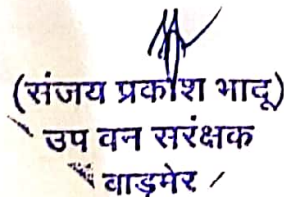 (संजय प्रकाश भादू)
उप वन सरंक्षक
वाड़मेर